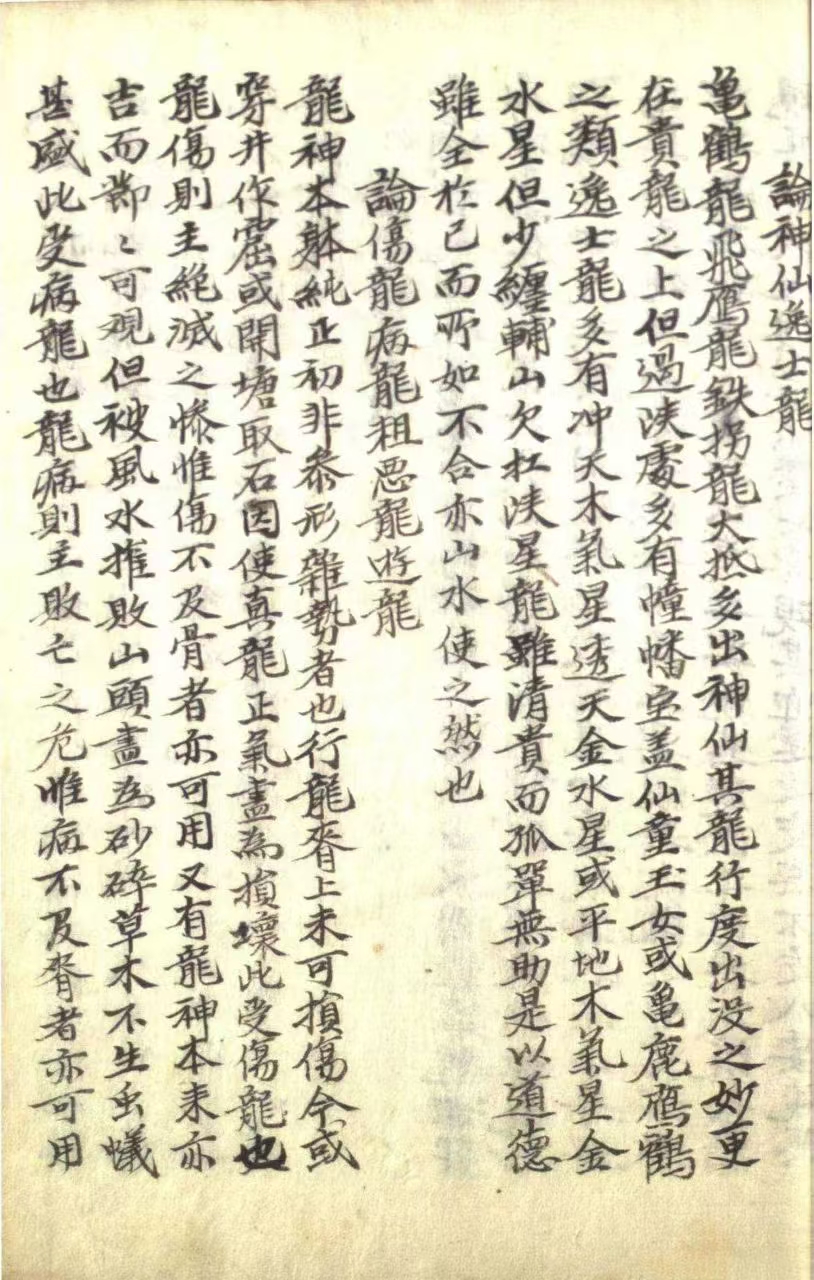 論神仙逸士龍
亀鶴龍飛鴈龍鉄拐龍大抵多出神仙其龍行度出没之妙更
在貴龍之上但過峡處多有幢幡宝盖仙童玉女或亀鹿鴈鶴
之類逸士龍多有冲天木氣星透天金水星或平地木氣星金
水星但少纏輔山欠扛峡星龍雖清貴而孤單無助是以道德
雖全於己而所如不合亦山水使之然也
論傷龍病龍粗恶龍遊龍
龍神本躰純正初非叅形雜勢者也行龍脊上未可損傷今或
穿井作窟或開塘取石因使真龍正氣盡為損壞此受傷龍也
龍傷則主絶滅之惨惟傷不及骨者亦可用又有龍神本来亦
吉而節〻可观但被風水摧敗山頭盡為砂碎草木不生虫蟻
甚盛此受病龍也龍病則主敗亡之危惟病不及脊者亦可用